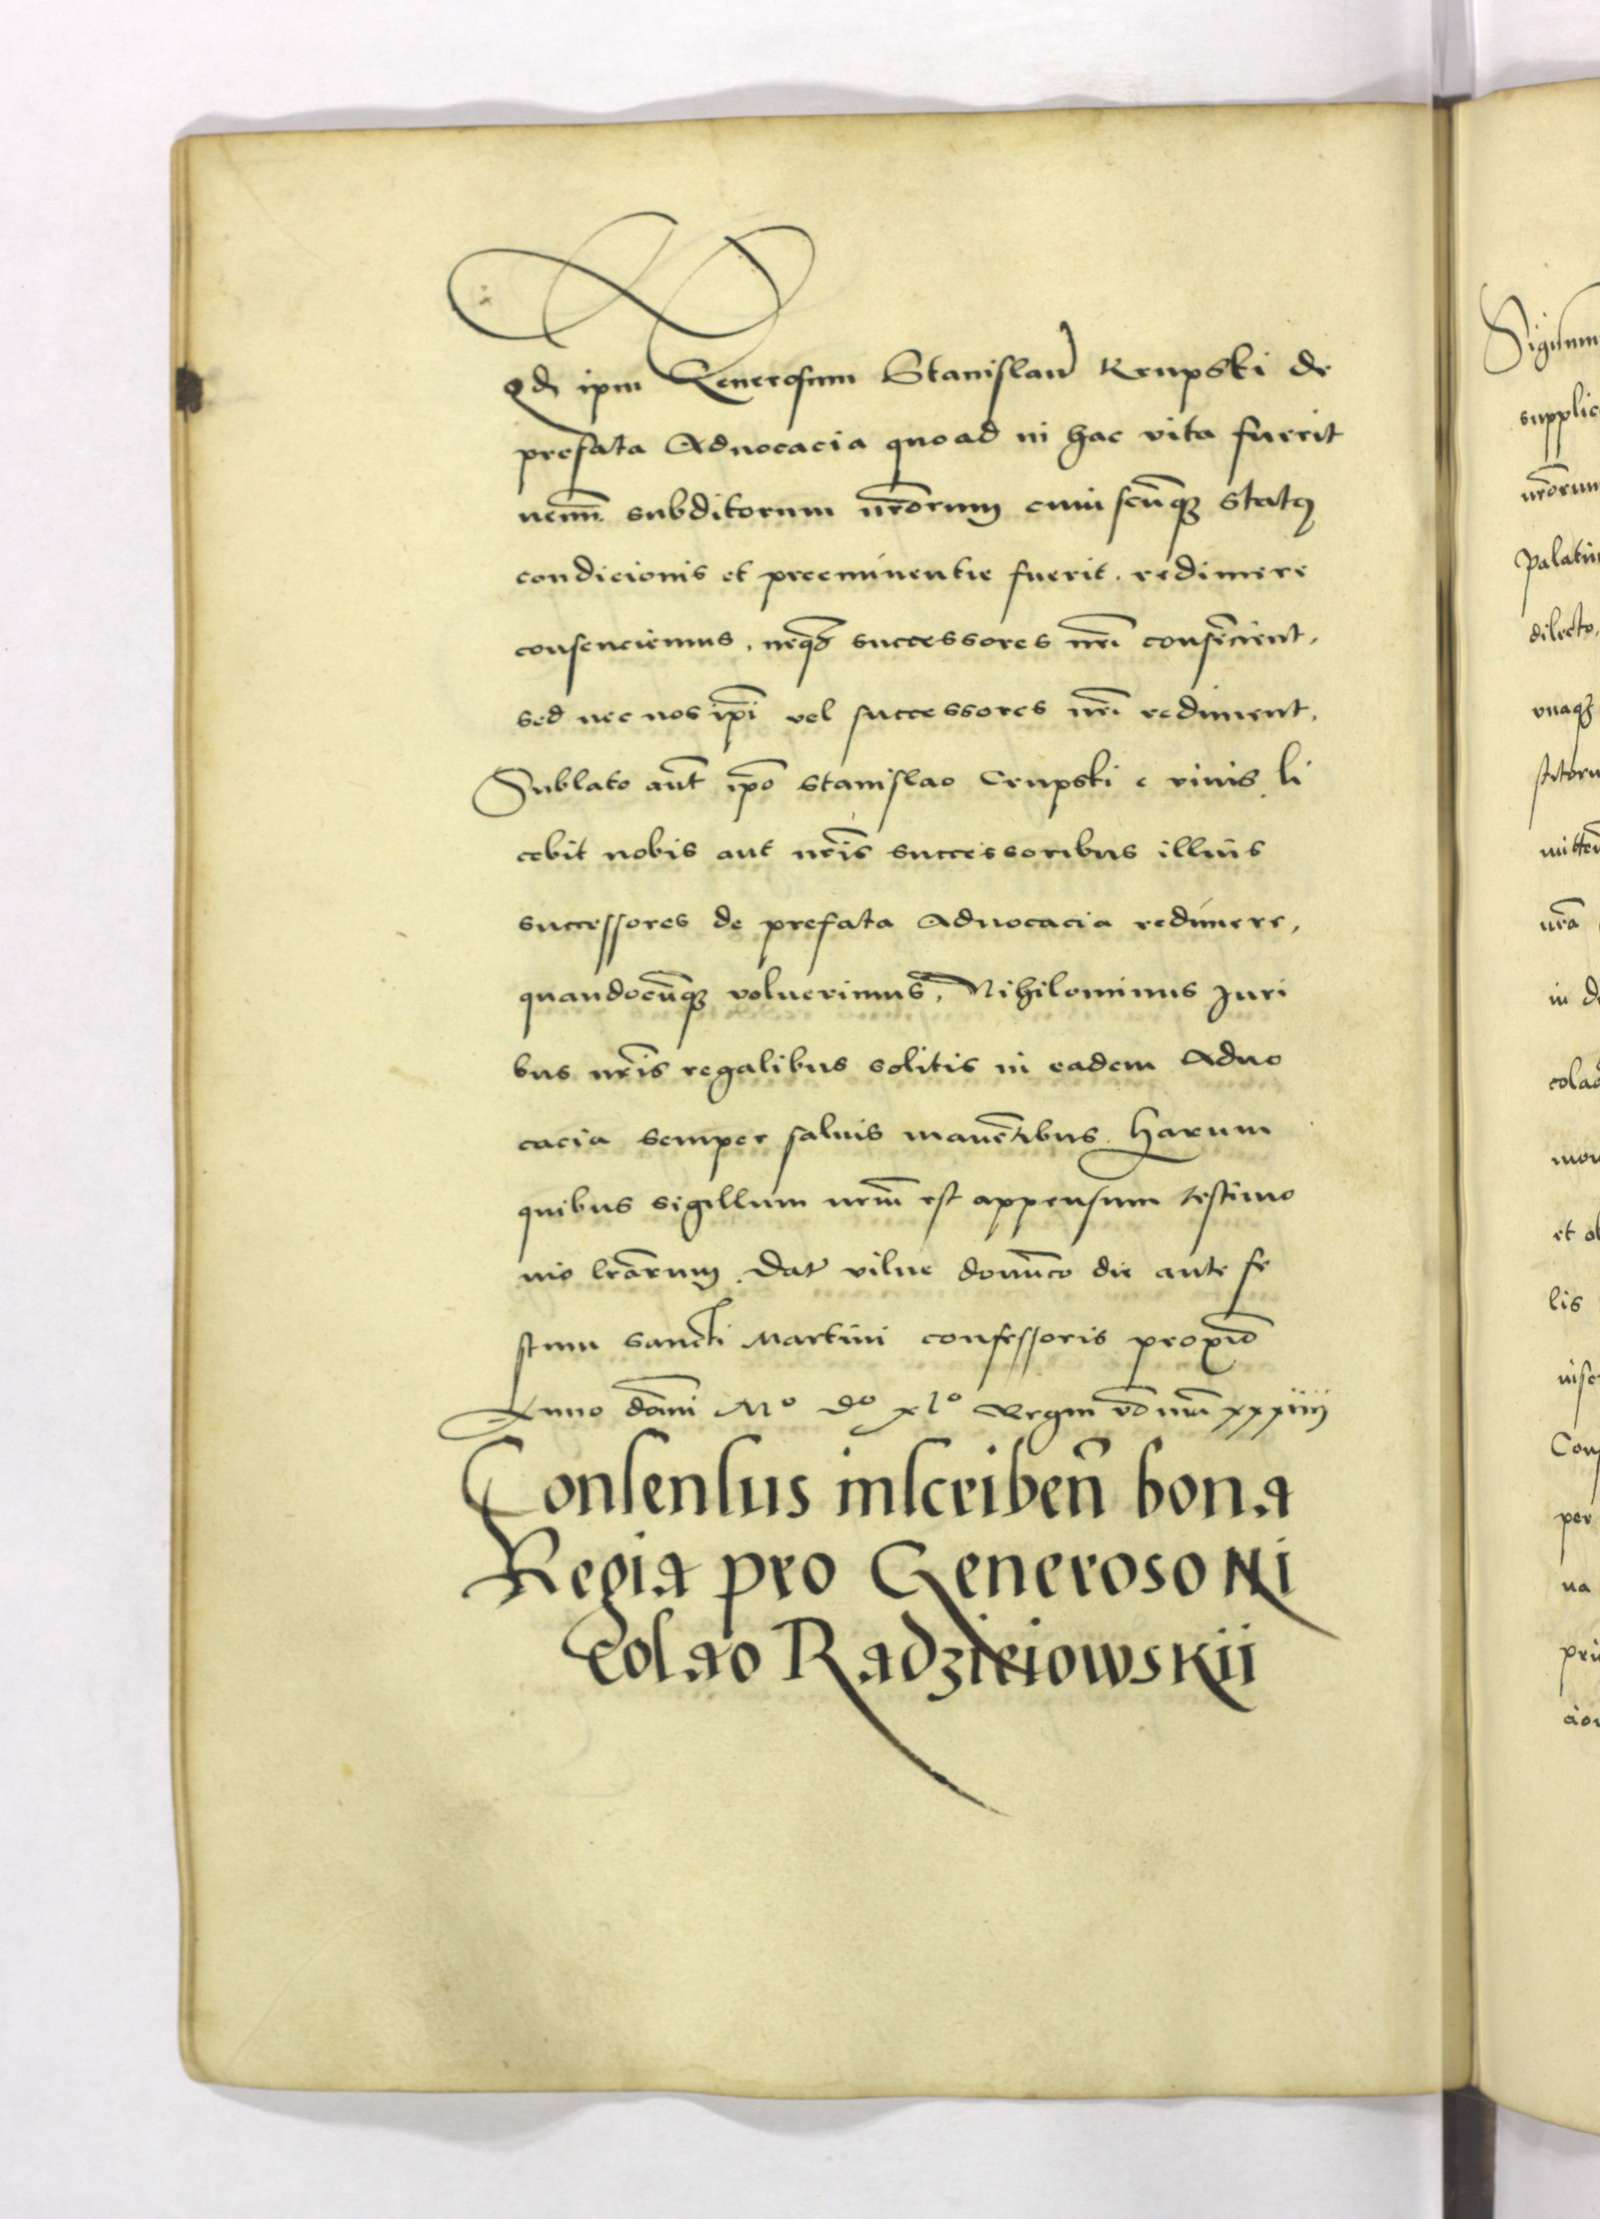 Qd ipm Generosum Stanislaũ Krupski de
prefata Aduocacia quoad in hac vita fuerit
nemi subditorum nr̃orum cuiuscũq3 status
condicionis et preeminentie fuerit. redimere
consenciemus. neq3 successores nr̃i consẽcient.
sed nec nos ip̃i vel successores nr̃i rediment.
Sublato aũt ip̃o Stanislao Crupski e viuis li
cebit nobis aut nr̃is successoribus illius
successores de prefata Aduocacia redimere,
quandocũq3 voluerimus, Nihilominus Juri
bus nr̃is regalibus solitis in eadem Aduo
cacia semper saluis manẽtibus. Harum
quibus sigillum nr̃um est appensum testimo
nio lr̃arum. Dat̃ vilne domĩco die ante fe
stum sancti Martini confessoris proxĩo
Anno dom̃i Mº dº xlº Regni vo nr̃i xxxiiii
Consensus inscribeñ bona
Regia pro Generoso Ni
colao Radzieiowskii
Sigismun
supplic
nr̃orum
Palatin
dilecto,
vnaq3
mitten
nr̃a
in d
colao
mon
et ob
lis
Cons
per
na
pri